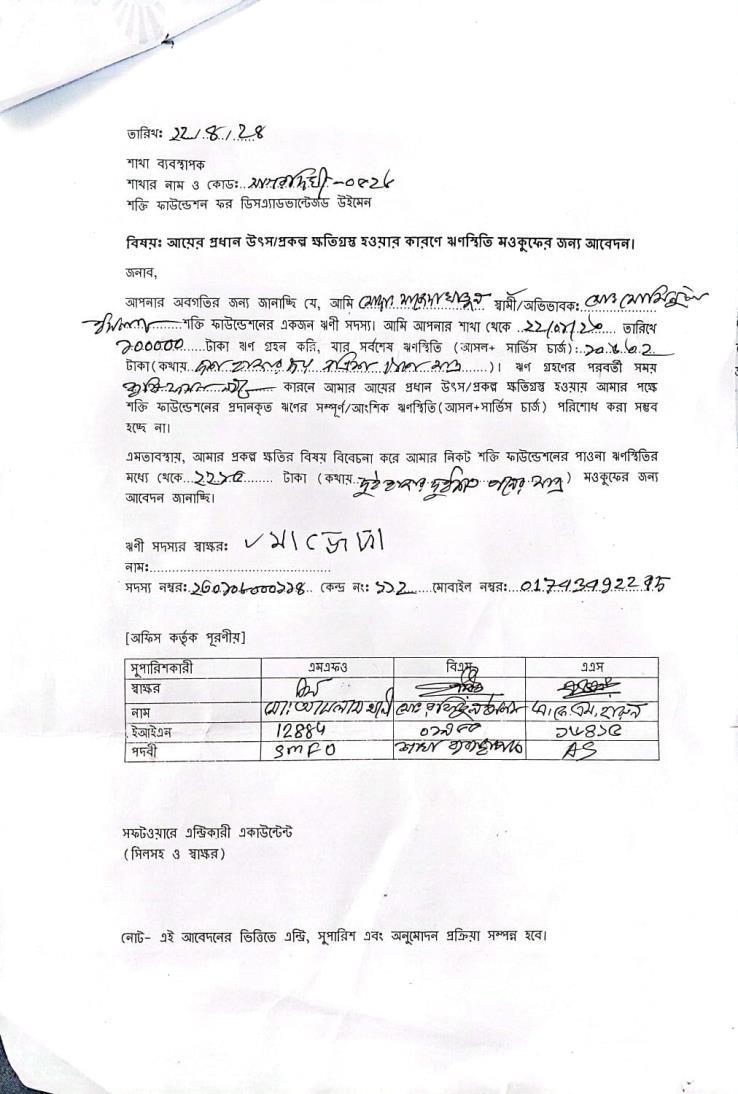 তারিখঃ ২২/৪/২৪
শাখা ব্যবস্থাপক
শাখার নাম ও কোডঃ
শক্তি ফাউন্ডেশন ফর ডিসএ্যাডভান্টেজড উইমেন
বিষয়ঃ আয়ের প্রধান উৎস/প্রকল্প ক্ষতিগ্রস্থ হওয়ার কারণে ঋণস্থিতি মওকুফের জন্য আবেদন।
জনাব,
আপনার অবগতির জন্য জানাচ্ছি যে, আমি স্বামী/অভিভাবকঃ
শক্তি ফাউন্ডেশনের একজন ঋণী সদস্য। আমি আপনার শাখা থেকে তারিখে
১০০০০০ টাকা ঋণ গ্রহন করি, যার সর্বশেষ ঋণস্থিতি (আসল+ সার্ভিস চার্জ)ঃ
টাকা(কথায় )। ঋণ গ্রহণের পরবর্তী সময়
কারনে আমার আয়ের প্রধান উৎস/প্রকল্প ক্ষতিগ্রস্থ হওয়ায় আমার পক্ষে
শক্তি ফাউন্ডেশনের প্রদানকৃত ঋণের সম্পূর্ণ/আংশিক ঋণস্থিতি(আসল+সার্ভিস চার্জ) পরিশোধ করা সম্ভব
হচ্ছে না।
এমতাবস্থায়, আমার প্রকল্প ক্ষতির বিষয় বিবেচনা করে আমার নিকট শক্তি ফাউন্ডেশনের পাওনা ঋণস্থিতির
মধ্যে থেকে ২২১৫ টাকা (কথায় দুই হাজার দুইশত পনের মাত্র) মওকুফের জন্য
আবেদন জানাচ্ছি।
ঋণী সদস্যর স্বাক্ষরঃ মাজেদা
নামঃ
সদস্য নম্বরঃ কেন্দ্র নং: ১১২ মোবাইল নম্বরঃ
[অফিস কর্তৃক পূরণীয়]
সুপারিশকারী এমএফও বিএম এএস
স্বাক্ষর
নাম এ.কে.এম. হারুন
ইআইএন 12884 ১৬৪১৫
পদবী SMFO শাখা ব্যবস্থাপক AS
সফটওয়ারে এন্ট্রিকারী একাউন্টেন্ট
(সিলসহ ও স্বাক্ষর)
নোট- এই আবেদনের ভিত্তিতে এন্ট্রি, সুপারিশ এবং অনুমোদন প্রক্রিয়া সম্পন্ন হবে।